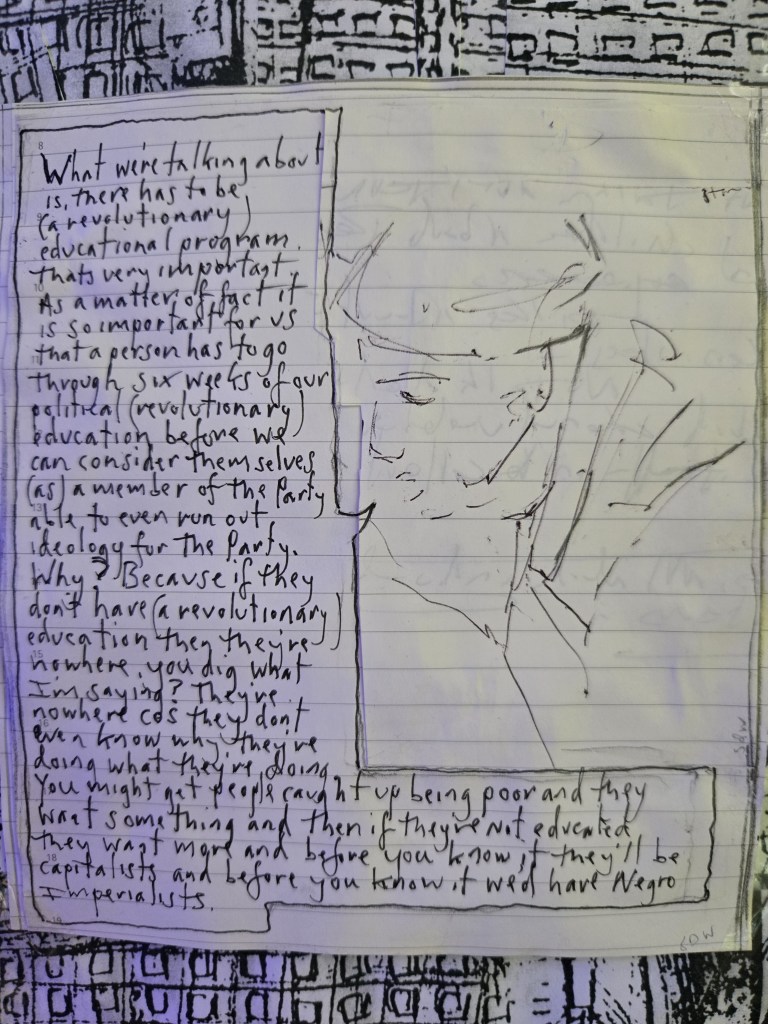 What we're talking about
is, there has to be
(a revolutionary)
educational program.
thats very important.
As a matter of fact it
is so important for us
that a person has to go
through six weeks of our
political (revolutionary)
education before we
can consider themselves
(as) a member of the Party
able to even run out
ideology for The Party.
Why? Because if they
don't have (a revolutionary)
education then they're
nowhere, you dig what
I'm saying? They're
nowhere cos they dont
even know why they're
doing what they're doing
You might get people caught up being poor and they
want something and then if they're Not educated
they want more and before you know it they'll be
capitalists and before you know it we'd have Negro
Imperialists.